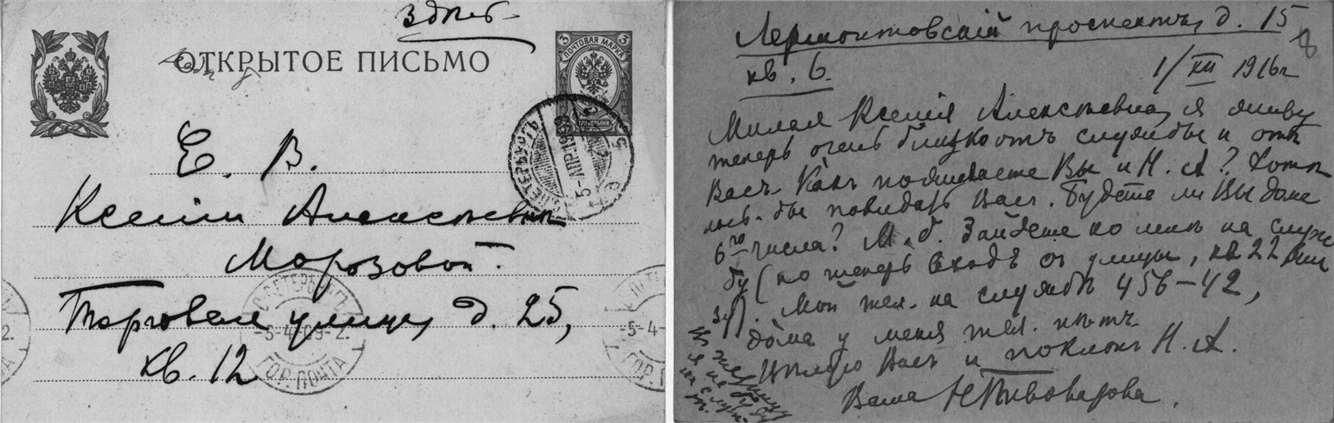 Здѣсь
ОТКРЫТОЕ ПИСЬМО
ПОЧТОВАЯ МАРКА
3
Е. В.
Ксеніи Алексѣевнѣ
Морозовой.
Торговая улица, д. 25,
кв. 12
С.ПЕТЕРБУРГЪ
5-4-09-2.
ГОР. ПОЧТА
Лермонтовскій проспектъ, д. 15
кв. 6.
8
1/XII 1916г
Милая Ксенія Алексѣевна, я живу
теперь очень близко отъ службы и отъ
Васъ. Какъ поживаете Вы и Н. А? Хотѣ
лось-бы повидать Васъ. Будете ли Вы дома
6го числа? М. б. зайдете ко мнѣ на служ
бу (но теперь входъ съ улицы, кв 22 вни
зу). Мой тел. на службѣ 456-42,
дома у меня тел. нѣтъ
Цѣлую Васъ и поклонъ Н. А.
Ваша НПивоварова.
я не буду